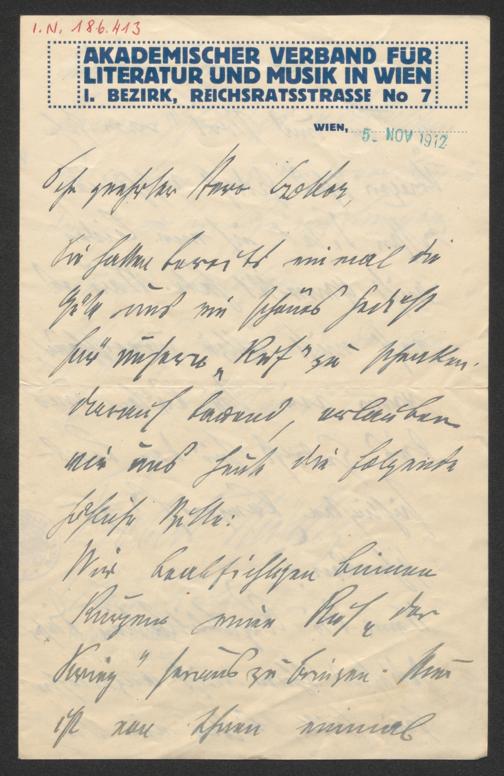 I.N. 186.413
AKADEMISCHER VERBAND FÜR
LITERATUR UND MUSIK IN WIEN
I. BEZIRK, REICHSRATSSTRASSE No 7
WIEN, 5. NOV 1912
Sehr geehrter Herr
Sie hatten bereits einmal die
Güte uns ein schönes Gedicht
für unsern „Ruf" zu schenken.
Darauf bauend, erlauben
wir uns heute die folgende
höfliche Bitte:
Wir beabsichtigen binnen
Kurzem einen Ruf „der
Krieg" herauszubringen. Nun
ist von Ihnen einmal